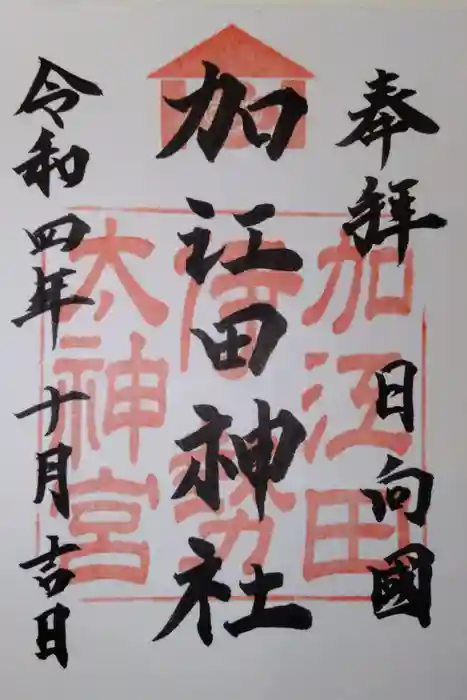 奉拝 日向國
加江田神社
令和四年十月吉日
加江田
伊勢
太神宮